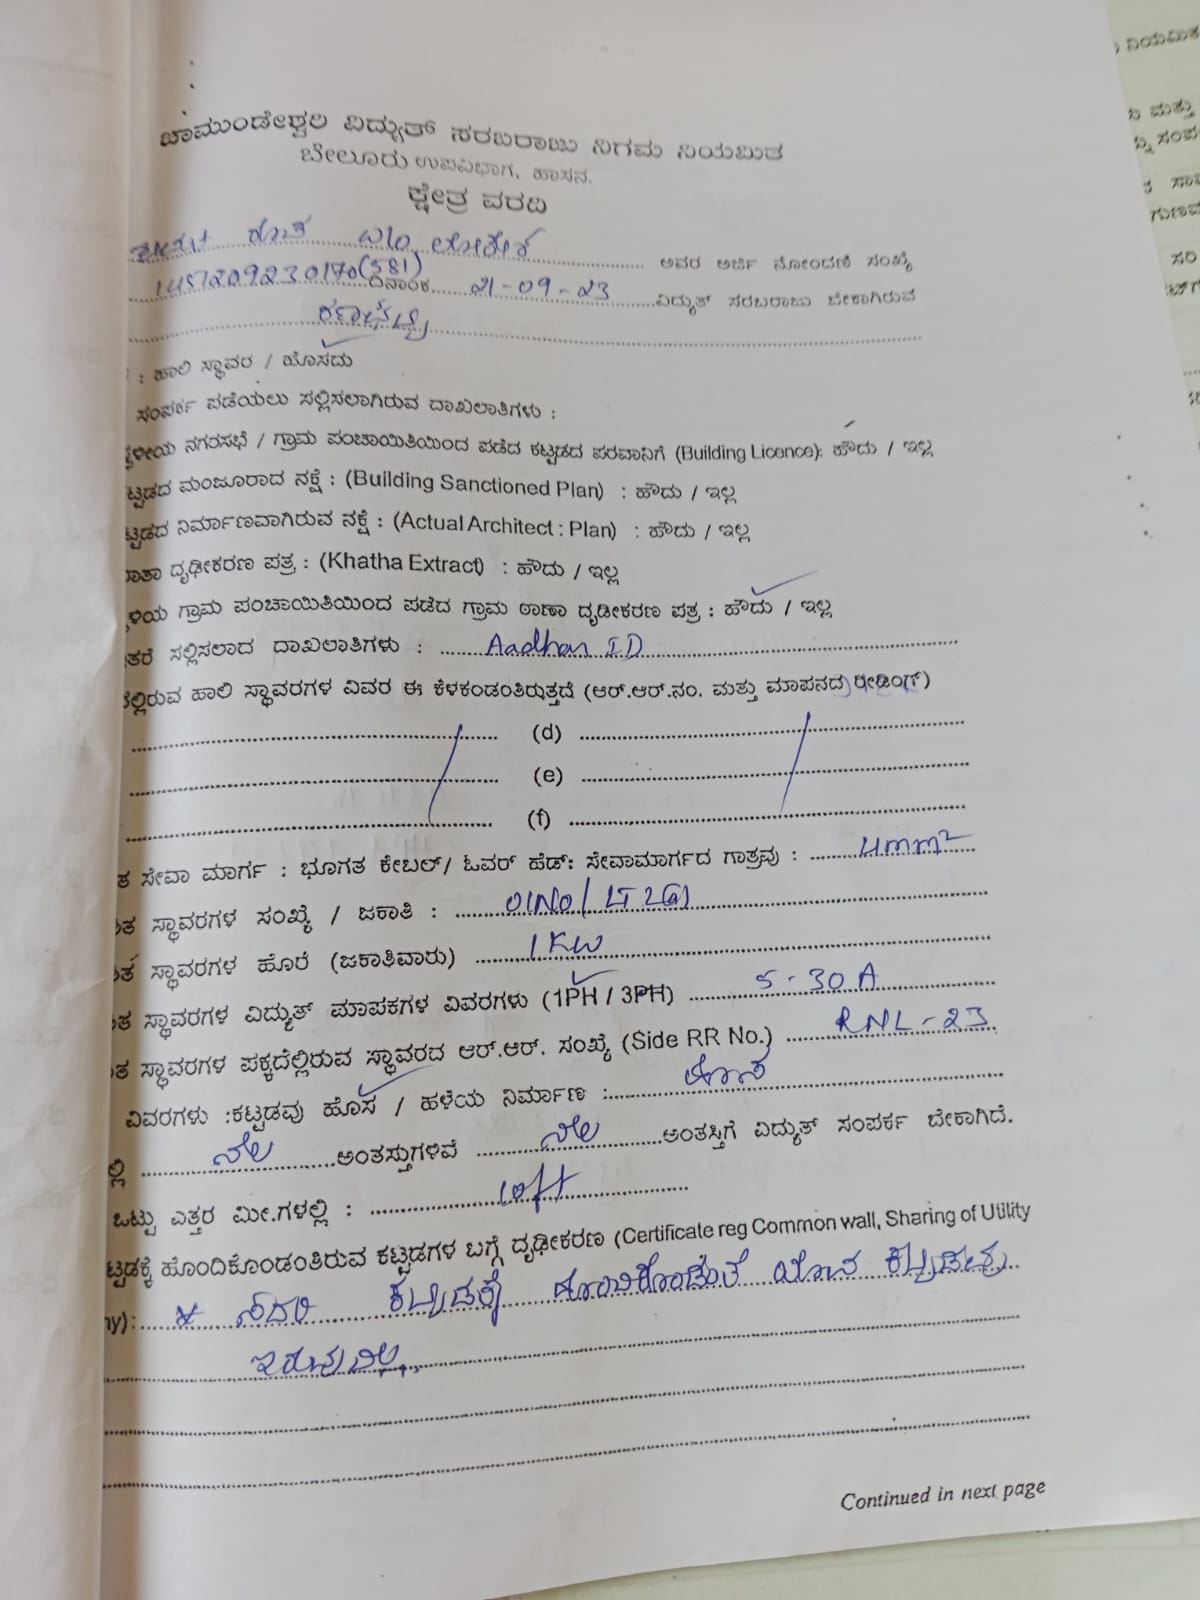 ಚಾಮುಂಡೇಶ್ವರಿ ವಿದ್ಯುತ್ ಸರಬರಾಜು ನಿಗಮ ನಿಯಮಿತ
ಬೇಲೂರು ಉಪವಿಭಾಗ, ಹಾಸನ.
ಕ್ಷೇತ್ರ ವರದಿ
ಅವರ ಅರ್ಜಿ ನೋಂದಣಿ ಸಂಖ್ಯೆ
(581) ದಿನಾಂಕ 21-09-23 ವಿದ್ಯುತ್ ಸರಬರಾಜು ಬೇಕಾಗಿರುವ
: ಹಾಲಿ ಸ್ಥಾವರ / ಹೊಸದು
ಸಂಪರ್ಕ ಪಡೆಯಲು ಸಲ್ಲಿಸಲಾಗಿರುವ ದಾಖಲಾತಿಗಳು :
ನಗರಸಭೆ / ಗ್ರಾಮ ಪಂಚಾಯಿತಿಯಿಂದ ಪಡೆದ ಕಟ್ಟಡದ ಪರವಾನಿಗೆ (Building Licence): ಹೌದು / ಇಲ್ಲ
ಮಂಜೂರಾದ ನಕ್ಷೆ : (Building Sanctioned Plan) : ಹೌದು / ಇಲ್ಲ
ನಿರ್ಮಾಣವಾಗಿರುವ ನಕ್ಷೆ : (Actual Architect : Plan) : ಹೌದು / ಇಲ್ಲ
ದೃಢೀಕರಣ ಪತ್ರ : (Khatha Extract) : ಹೌದು / ಇಲ್ಲ
ಗ್ರಾಮ ಪಂಚಾಯಿತಿಯಿಂದ ಪಡೆದ ಗ್ರಾಮ ಠಾಣಾ ದೃಡೀಕರಣ ಪತ್ರ : ಹೌದು / ಇಲ್ಲ
ಸಲ್ಲಿಸಲಾದ ದಾಖಲಾತಿಗಳು : Aadhar ID
ಹಾಲಿ ಸ್ಥಾವರಗಳ ವಿವರ ಈ ಕೆಳಕಂಡಂತಿರುತ್ತದೆ (ಆರ್.ಆರ್.ನಂ. ಮತ್ತು ಮಾಪನದ ರೀಡಿಂಗ್)
(d)
(e)
(f)
ಸೇವಾ ಮಾರ್ಗ : ಭೂಗತ ಕೇಬಲ್/ ಓವರ್ ಹೆಡ್: ಸೇವಾಮಾರ್ಗದ ಗಾತ್ರವು : 4mm²
ಸ್ಥಾವರಗಳ ಸಂಖ್ಯೆ / ಜಕಾತಿ :
ಸ್ಥಾವರಗಳ ಹೊರೆ (ಜಕಾತಿವಾರು) 1KW
ಸ್ಥಾವರಗಳ ವಿದ್ಯುತ್ ಮಾಪಕಗಳ ವಿವರಗಳು (1PH / 3PH) 5-30A
ಸ್ಥಾವರಗಳ ಪಕ್ಕದಲ್ಲಿರುವ ಸ್ಥಾವರದ ಆರ್.ಆರ್. ಸಂಖ್ಯೆ (Side RR No.) RNL-23
ವಿವರಗಳು :ಕಟ್ಟಡವು ಹೊಸ / ಹಳೆಯ ನಿರ್ಮಾಣ : ಹೊಸ
ನೆಲ ಅಂತಸ್ತುಗಳಿವೆ ನೆಲ ಅಂತಸ್ತಿಗೆ ವಿದ್ಯುತ್ ಸಂಪರ್ಕ ಬೇಕಾಗಿದೆ.
ಒಟ್ಟು ಎತ್ತರ ಮೀ.ಗಳಲ್ಲಿ : 10ft
ಹೊಂದಿಕೊಂಡಂತಿರುವ ಕಟ್ಟಡಗಳ ಬಗ್ಗೆ ದೃಢೀಕರಣ (Certificate reg Common wall, Sharing of Utility
ಸದರಿ ಕಟ್ಟಡಕ್ಕೆ ಹೊಂದಿಕೊಂಡಂತೆ ಯಾವ ಕಟ್ಟಡವು
ಇರುವುದಿಲ್ಲ.
Continued in next page